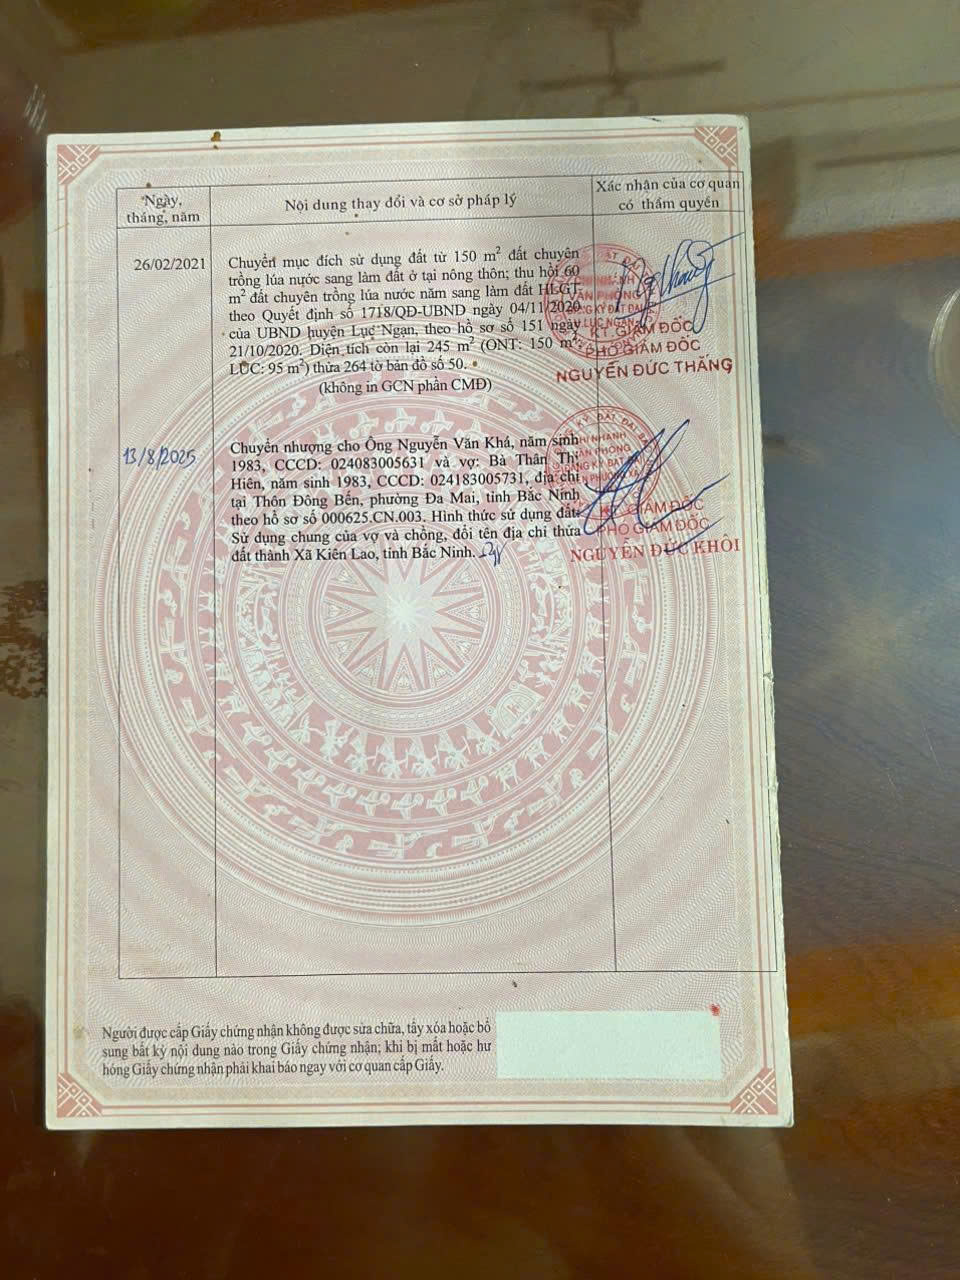 Ngày,
tháng, năm
Nội dung thay đổi và cơ sở pháp lý
Xác nhận của cơ quan
có thẩm quyền
26/02/2021
Chuyển mục đích sử dụng đất từ 150 m² đất chuyên
trồng lúa nước sang làm đất ở tại nông thôn; thu hồi 60
m² đất chuyên trồng lúa nước năm sang làm đất HLGT
theo Quyết định số 1718/QĐ-UBND ngày 04/11/2020
của UBND huyện Lục Ngạn, theo hồ sơ số 151 ngày
21/10/2020. Diện tích còn lại 245 m² (ONT: 150 m²,
LUC: 95 m²) thửa 264 tờ bản đồ số 50.
(không in GCN phần CMĐ)
VĂN PHÒNG
ĐĂNG KÝ ĐẤT ĐAI
KT. GIÁM ĐỐC
PHÓ GIÁM ĐỐC
NGUYỄN ĐỨC THẮNG
13/8/2025
Chuyển nhượng cho Ông Nguyễn Văn Khá, năm sinh
1983, CCCD: 024083005631 và vợ: Bà Thân Thị
Hiên, năm sinh 1983, CCCD: 024183005731, địa chỉ
tại Thôn Đông Bến, phường Đa Mai, tỉnh Bắc Ninh
theo hồ sơ số 000625.CN.003. Hình thức sử dụng đất:
Sử dụng chung của vợ và chồng, đổi tên địa chỉ thửa
đất thành Xã Kiên Lao, tỉnh Bắc Ninh.
CHI NHÁNH
VĂN PHÒNG
ĐĂNG KÝ ĐẤT ĐAI
KT. GIÁM ĐỐC
PHÓ GIÁM ĐỐC
NGUYỄN ĐỨC KHÔI
Người được cấp Giấy chứng nhận không được sửa chữa, tẩy xóa hoặc bổ
sung bất kỳ nội dung nào trong Giấy chứng nhận; khi bị mất hoặc hư
hỏng Giấy chứng nhận phải khai báo ngay với cơ quan cấp Giấy.